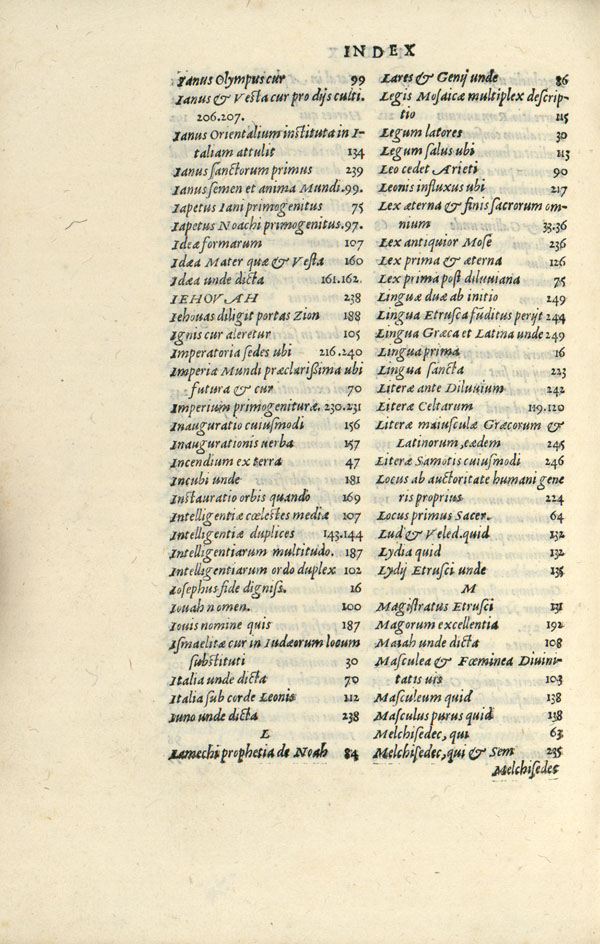 INDEX
Ianus Olympus cur 99
Ianus & Vesta cur pro dijs culti.
206.207.
Ianus Orientalium instituta in I-
taliam attulit 134
Ianus sanctorum primus 239
Ianus semen et anima Mundi. 99.
Iapetus Iani primogenitus 75
Iapetus Noachi primogenitus. 97.
Ideæ formarum 107
Idæa Mater quæ & Vesta 160
Idæa unde dicta 161.162.
IEHOVAH 238
Iehouas diligit portas Zion 188
Ignis cur aleretur 105
Imperatoria sedes ubi 216.240
Imperia Mundi præclarissima ubi
futura & cur 70
Imperium primogenituræ. 230.231
Inauguratio cuiusmodi 156
Inaugurationis uerba 157
Incendium ex terra 47
Incubi unde 181
Instauratio orbis quando 169
Intelligentiæ cœlestes mediæ 107
Intelligentiæ duplices 143.144
Intelligentiarum multitudo. 187
Intelligentium ordo duplex 102
Iosephus fide digniss. 16
Iouah nomen. 100
Iouis nomine quis 187
Ismaelitæ cur in Iudæorum locum
substituti 30
Italia unde dicta 70
Italia sub corde Leonis 112
Iuno unde dicta 238
L
Lamechi prophetia de Noah 84
Lares & Genij unde 86
Legis Mosaicæ multiplex descrip-
tio 115
Legum latores 30
Legum salus ubi 113
Leo cedet Arieti 90
Leonis influxus ubi 217
Lex æterna & finis sacrorum om-
nium 33.36
Lex antiquior Mose 236
Lex prima & æterna 126
Lex prima post diluuiana 75
Linguæ duæ ab initio 249
Lingua Etrusca fūditus perijt 244
Lingua Græca et Latina unde 249
Lingua prima 16
Lingua sancta 223
Literæ ante Diluuium 242
Literæ Celtarum 119.120
Literæ maiusculæ Græcorum &
Latinorum, eædem 245
Literæ Samotis cuiusmodi 246
Locus ab auctoritate humani gene
ris proprius 224
Locus primus Sacer. 64
Lud & Veled. quid 132
Lydia quid 132
Lydij Etrusci unde 135
M
Magistratus Etrusci 131
Magorum excellentia 192
Maiah unde dicta 108
Masculea & Fœminea Diuini-
tatis uis 103
Masculeum quid 138
Masculus purus quid 138
Melchisedec, qui 63
Melchisedec, qui & Sem 235
Melchisedec